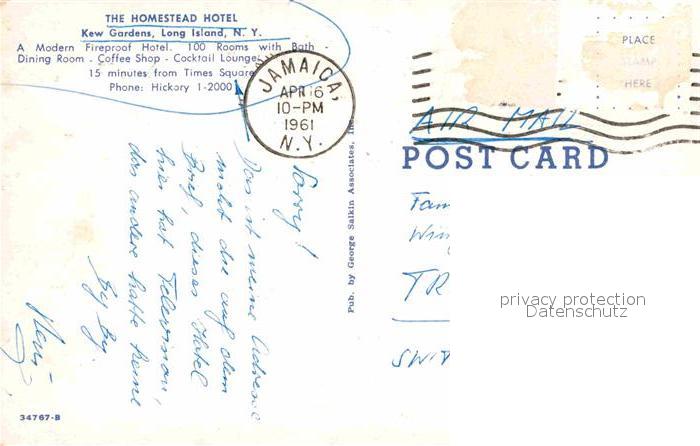 THE HOMESTEAD HOTEL
Kew Gardens, Long Island, N. Y.
A Modern Fireproof Hotel. 100 Rooms with Bath -
Dining Room - Coffee Shop - Cocktail Lounge.
15 minutes from Times Square
Phone: Hickory 1-2000
JAMAICA,
APR 6
10-PM
1961
N.Y.
PLACE
STAMP
HERE
AIR MAIL
POST CARD
Sorry!
Das ist meine Adresse
nicht die auf dem
Brief, dieses Hotel
hier hat Television,
das andere hatte keine
By By.
Pub. by George Salkin Associates, Inc.
Fam
Win
TR
SWI
privacy protection
Datenschutz
34767-B